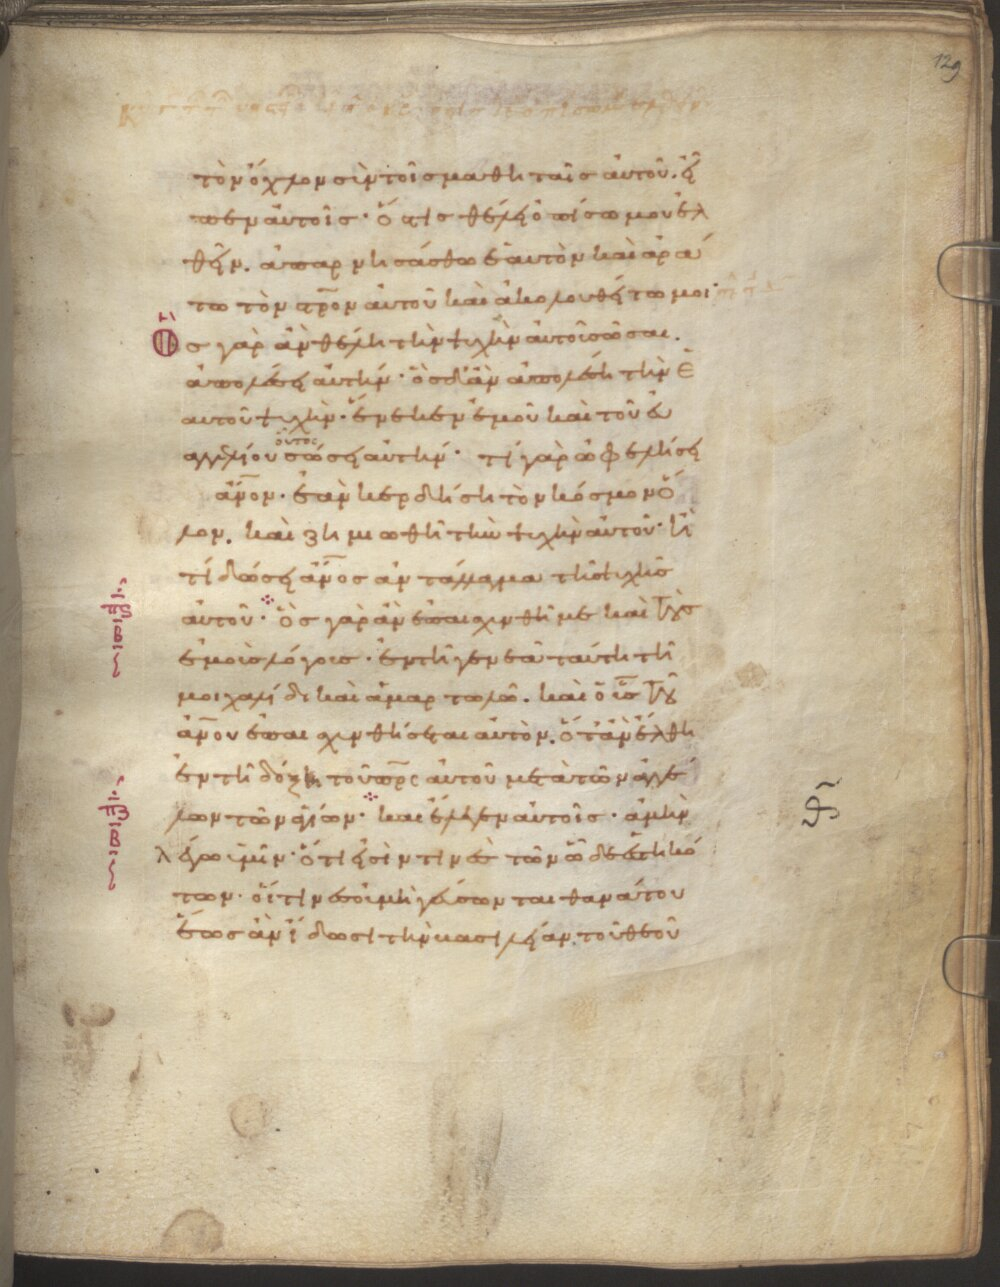 129
τὸν ὄχλον σὺν τοῖς μαθηταῖς αὐτοῦ. εἶ
πεν αὐτοῖς· ὅστις θέλει ὀπίσω μου ἐλ
θεῖν. ἀπαρνησάσθω ἑαυτὸν καὶ ἀρά
τω τὸν σ̅ρ̅ον αὐτοῦ καὶ ἀκολουθείτω μοι·
Ὃς γὰρ ἂν θέλη τὴν ψυχὴν αὐτοῦ σῶσαι.
ἀπολέσει αὐτήν· ὃς δ' ἂν ἀπολέση τὴν ἑ
αυτοῦ ψυχὴν· ἕνεκεν ἐμοῦ καὶ τοῦ εὐ
οὗτος
αγγελίου σώσει αὐτήν· τί γὰρ ὠφελήσει
α̅ν̅ον· ἐὰν κερδήση τὸν κόσμον ὅ
λον. καὶ ζημιωθῆ τὴν ψυχὴν αὐτοῦ· ἢ
τί δώσει α̅ν̅ος ἀντάλλαγμα τῆς ψυχῆς
αὐτοῦ· ὃς γὰρ ἂν ἐπαισχυνθῆ με καὶ τοὺς
ἐμοὺς λόγους· ἐν τῆ γενεᾶ ταύτη τῆ
μοιχαλίδι καὶ ἁμαρτωλῶ. καὶ ὁ υ̅ς̅ τοῦ
α̅ν̅ου ἐπαισχυνθήσεται αὐτὸν. ὅταν ἔλθη
ἐν τῆ δόξη τοῦ π̅ρ̅ς αὐτοῦ μετὰ τῶν ἀγγέ
λων τῶν ἁγίων· καὶ ἔλεγεν αὐτοῖς· ἀμὴν
λέγω ὑμῖν· ὅτι εἰσίν τινες τῶν ὧδε ἑστηκό
των· οἵτινες οὐ μὴ γεύσωνται θανάτου
ἕως ἂν ἴδωσι τὴν βασιλείαν τοῦ θεοῦ